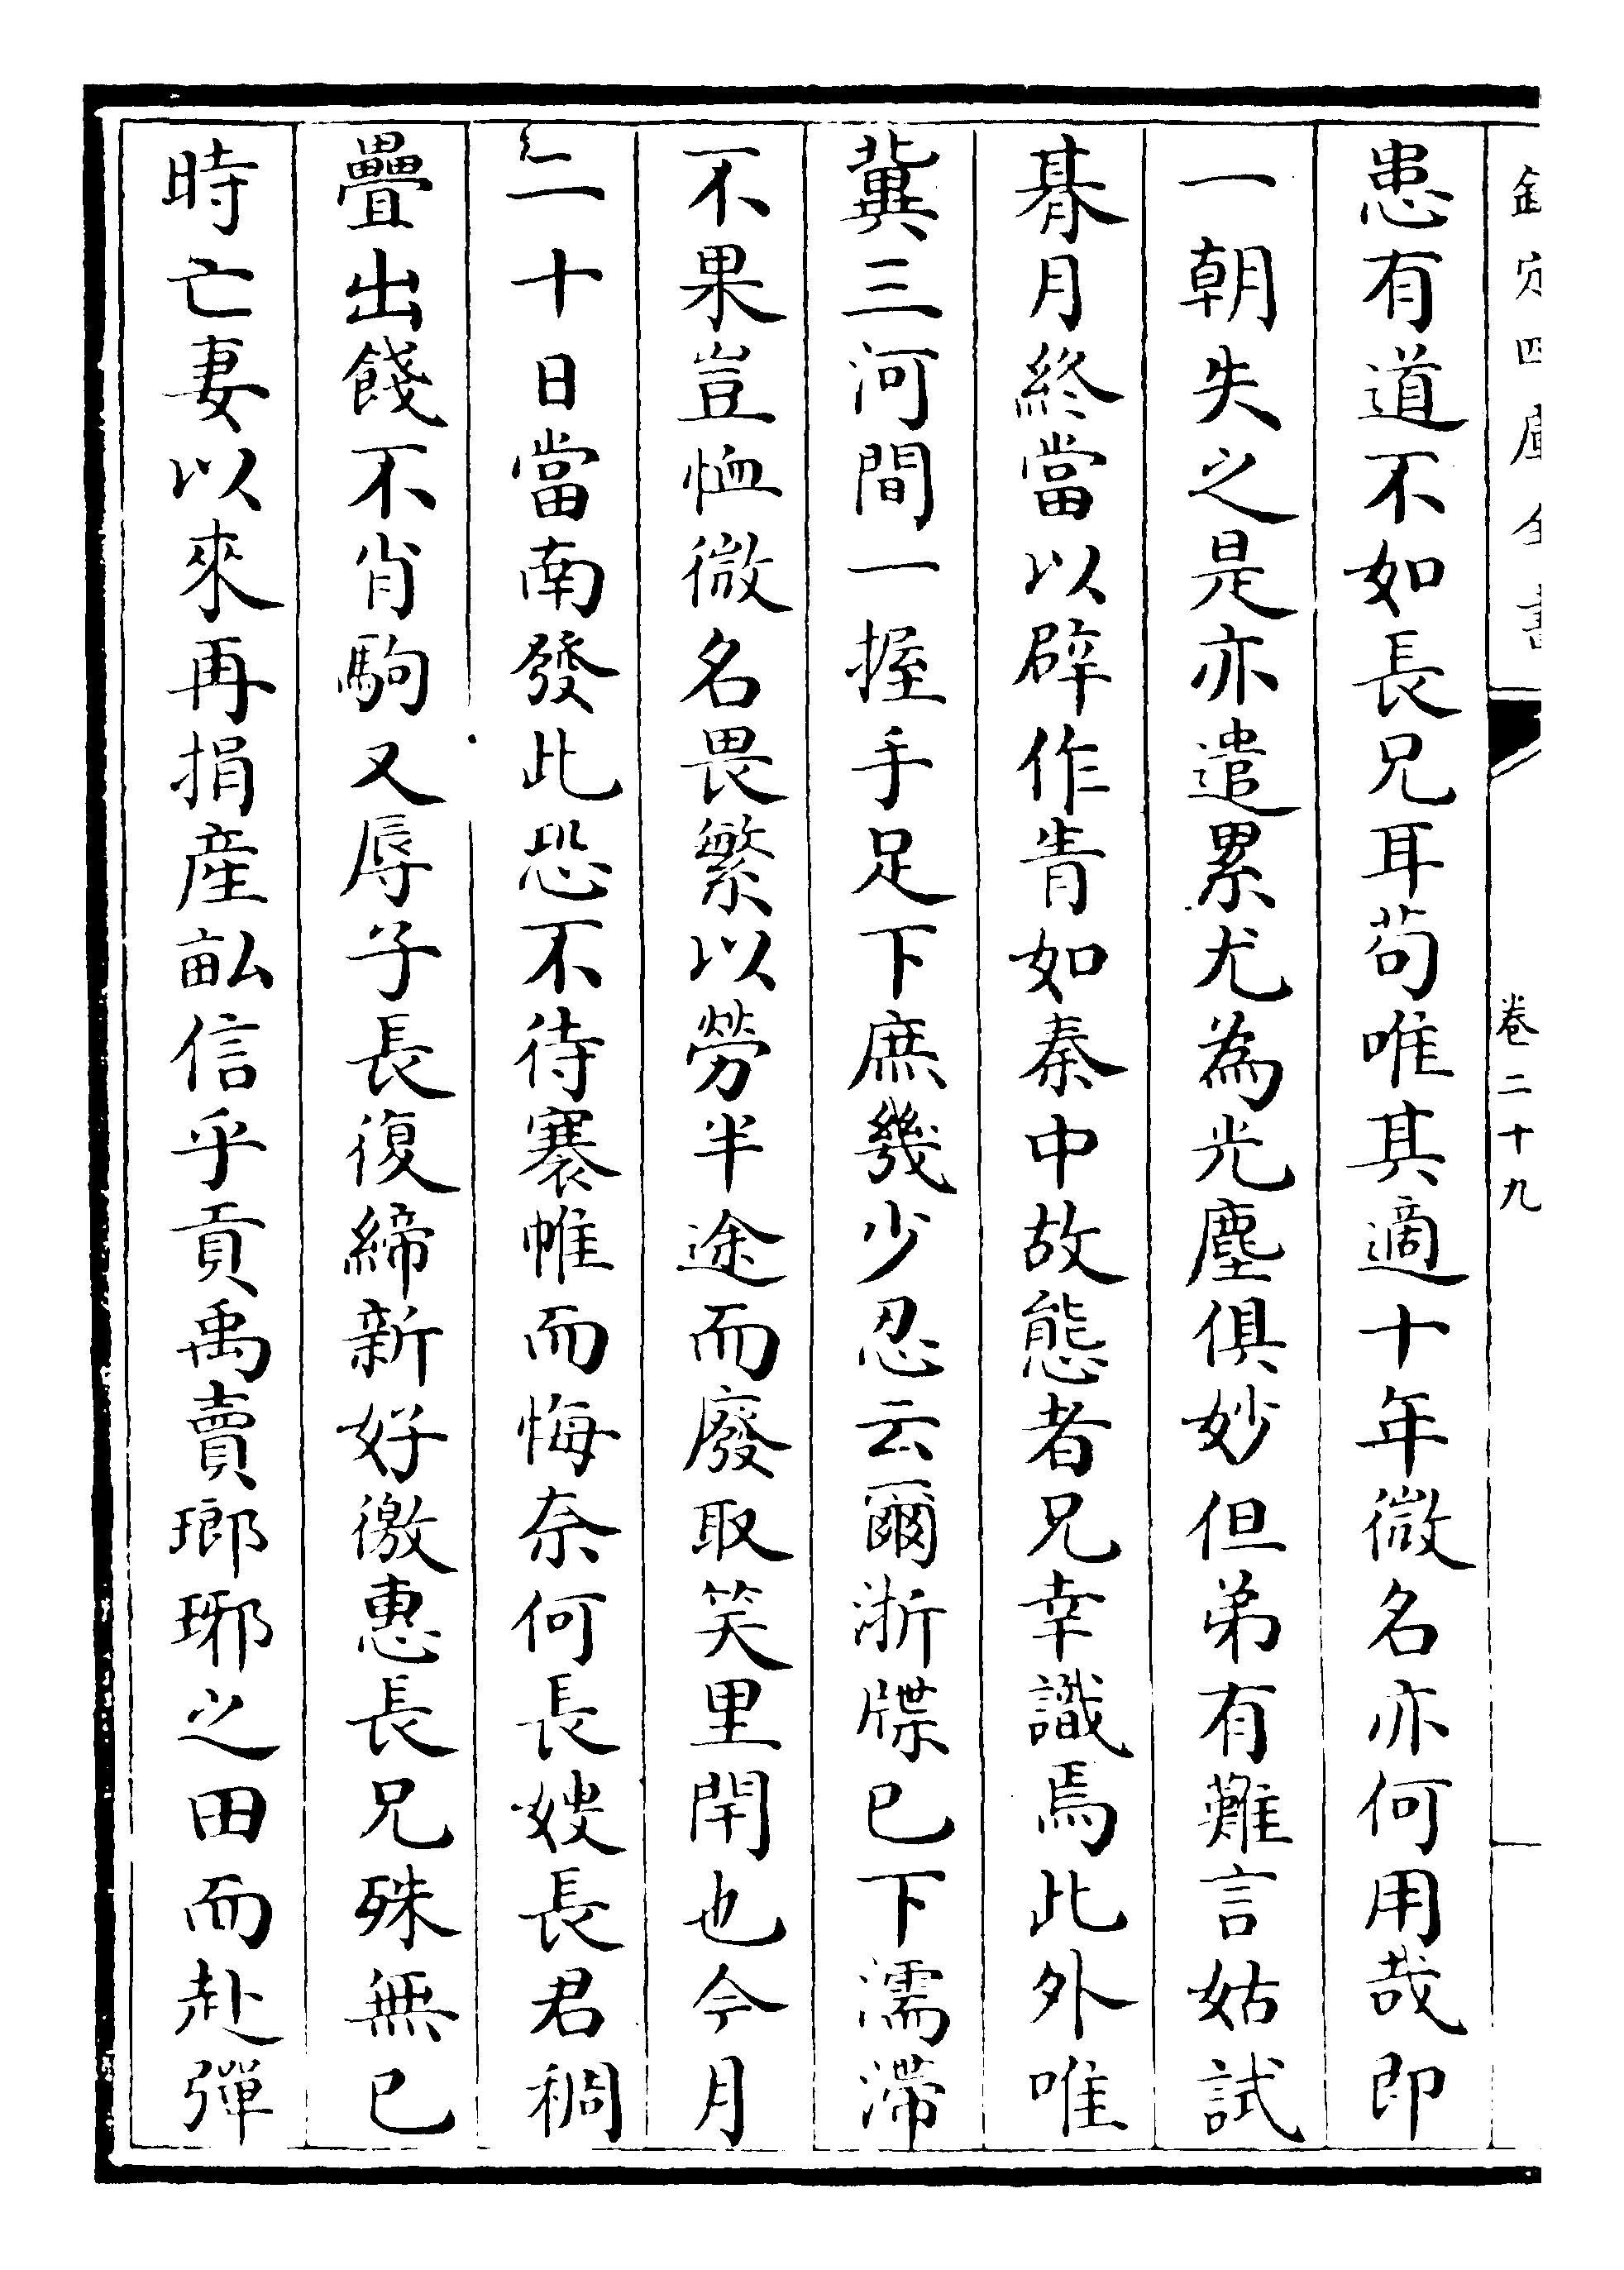 欽定四庫全書
卷二十九
患有道不如長兄耳茍唯其適十年微名亦何用哉即
一朝失之是亦遣累尤為光塵俱妙但弟有難言姑試
朞月終當以辟作眚如秦中故態者兄幸識焉此外唯
冀三河間一握手足下庶幾少忍云爾浙牒已下濡滯
不果豈恤微名畏繁以勞半途而廢取笑里閈也今月
二十日當南發此恐不待褰帷而悔奈何長嫂長君稠
疊出餞不肖駒又辱子長復締新好徼惠長兄殊無已
時亡妻以來再捐產畝信乎貢禹賣瑯琊之田而赴彈